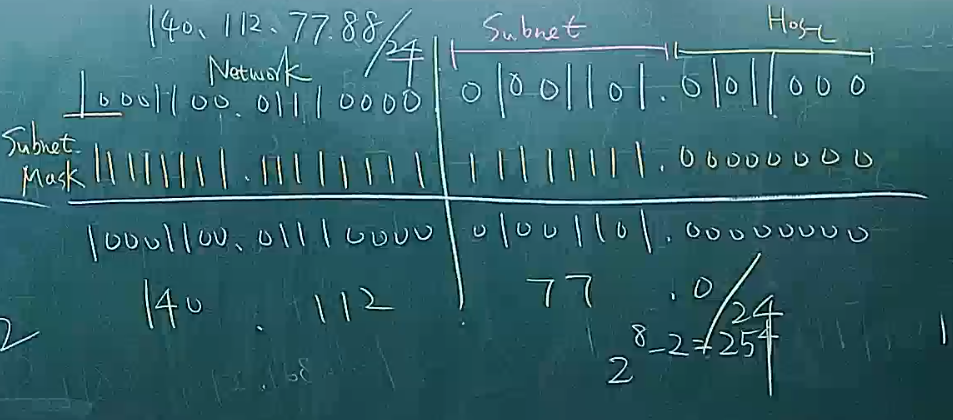 140.112.77.88/24 Subnet Host
Network
10001100.01110000 01001101.01011000
Subnet Mask 11111111.11111111 11111111.00000000
10001100.01110000 01001101.00000000
140.112.77.0/24
2
2^8-2=254